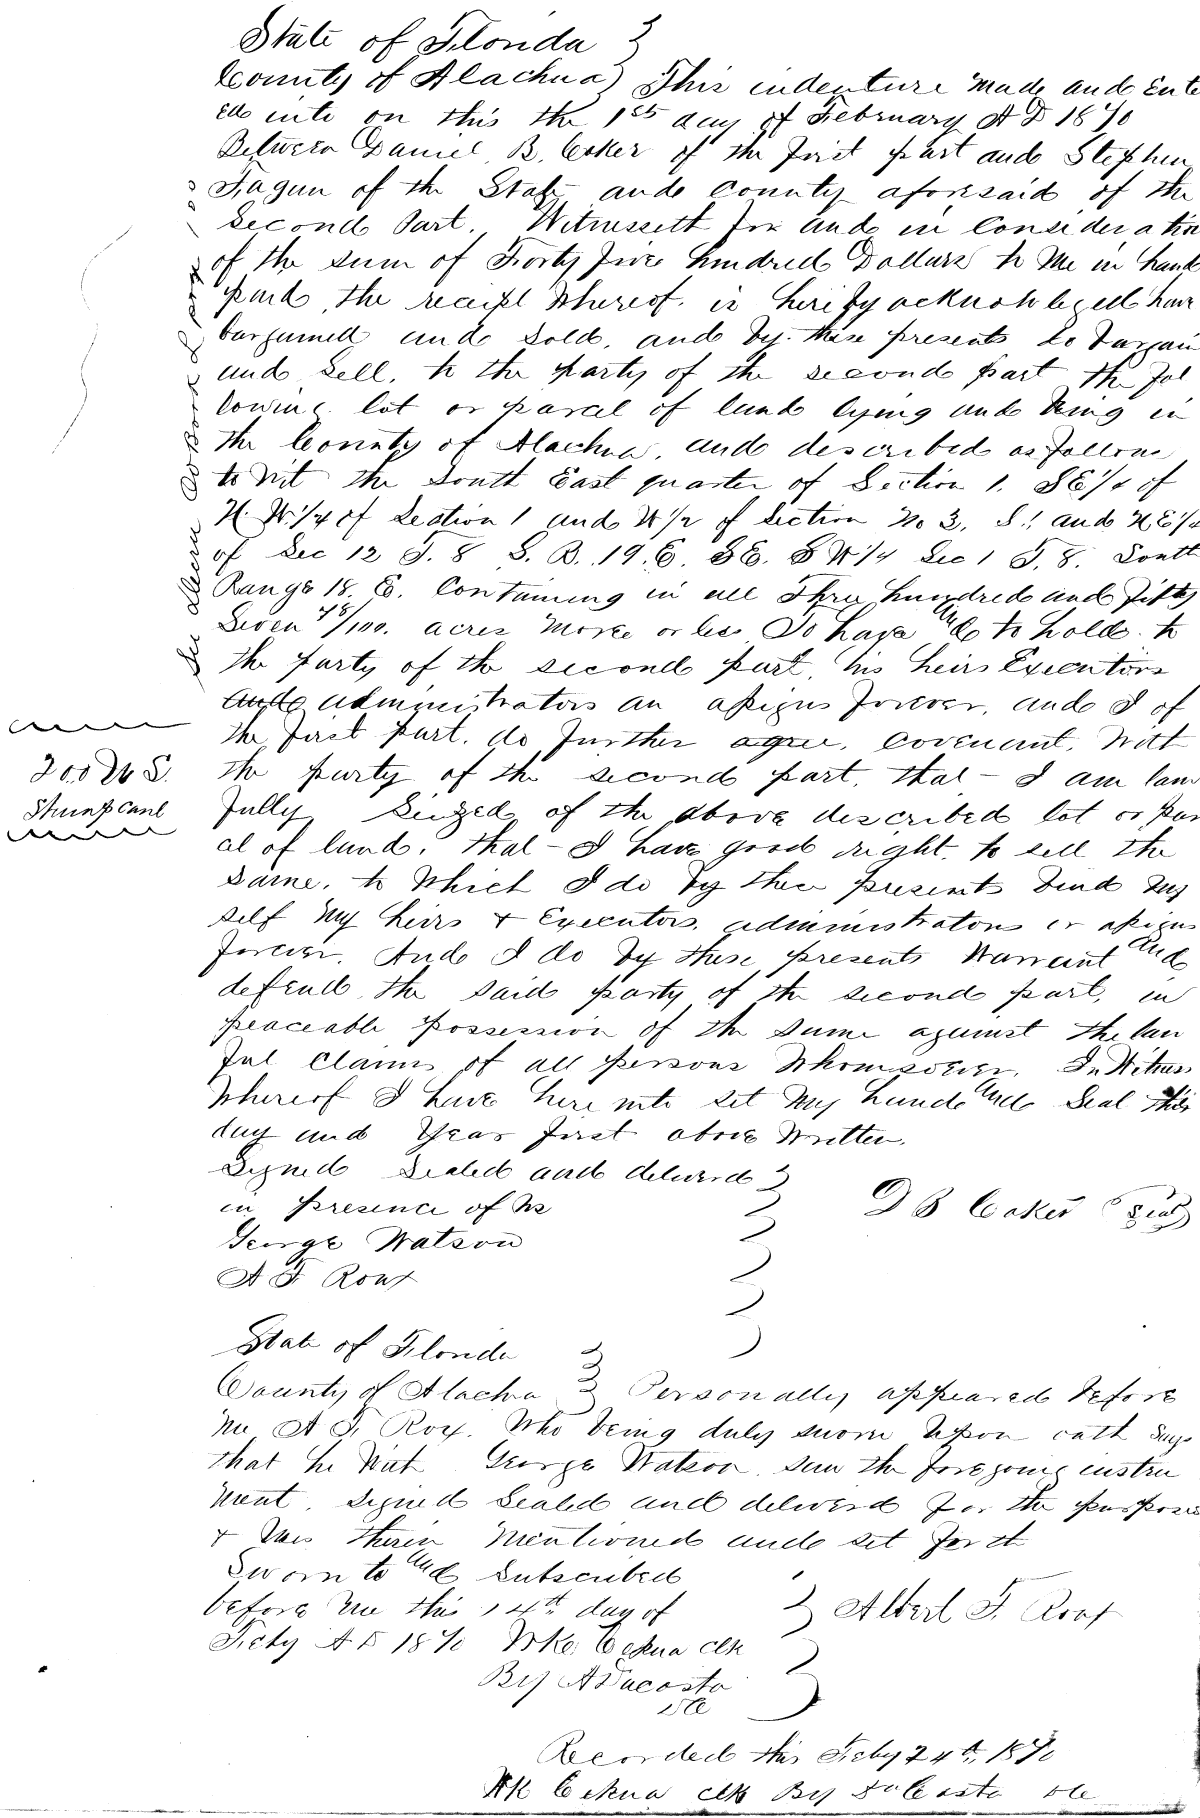 State of Florida
County of Alachua This indenture made and Enter
ed into on this the 1st day of February A D 1870
Between Daniel B. Coker of the first part and Stephen
Fagun of the State and County aforesaid of the
second Part. Witnesseth for and in Consideration
of the sum of Forty five hundred Dollars to Me in hand
paid, the receipt Whereof. is hereby acknowledged have
bargained and Sold, and by these presents do bargain
and Sell, to the party of the second part the fol
lowing lot or parcel of land lying and being in
the County of Alachua, and described as follows
to Wit the South East quarter of Section 1. SE 1/4 of
N W 1/4 of Section 1 and W 1/2 of Section No 3, and N E 1/4
of Sec 12 T. 8 S. R. 19. E. SE. S W 1/4 Sec 1 T. 8. South
Range 18. E. Containing in all Three hundred and fifty
Seven 48/100. acres More or less To have and to hold to
the party of the second part, his heirs Executors
and administrators an assigns forever, and I of
the first part. do further agree, covenant, With
the party of the second part, that - I am law
fully Seized of the above described lot or par
cel of land. that - I have good right, to sell the
same. to Which I do by these presents bind my
self My heirs + Executors, administrators or assigns
forever. And I do by these presents Warrant and
defend the said party of the second part, in
peaceable possession of the same against the law
ful claims of all persons Whomsoever. In Witness
Whereof I have here unto set My hand and Seal this
day and Year first above Written.
Signed Sealed and deliverd
in presence of us
D B Coker Seal
George Watson
A F Roux
200 S.
Stamp Canl
State of Florida
County of Alachua Personally appeared before
me A F. Roux. Who being duly sworn upon oath says
that he With George Watson saw the foregoing instru
ment. Signed Sealed and deliverd for the purposes
+ Uses therein Mentioned and set forth
Sworn to and Subscribed
before Me this 14th day of
Albert F. Roux
Feby A D 1870 clk
By A Dacosta
DC
Recorded this Feby 24th, 1870
clk By DaCosta DC